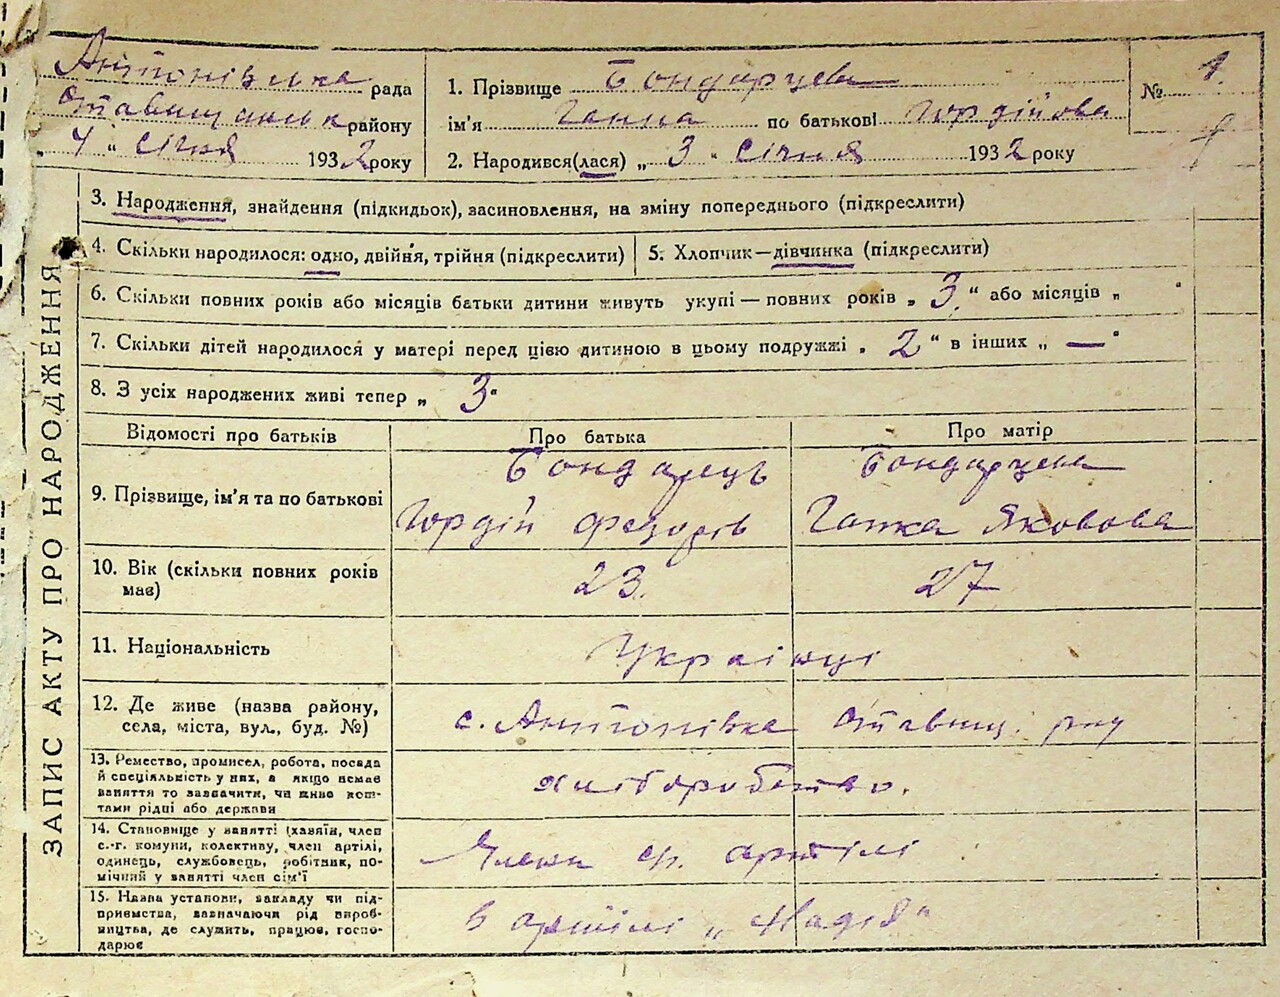 Антонівська рада
Ставищанськ району
„ 4 " січня 1932 року
1. Прізвище Бондарцева
ім'я Ганна по батькові Гордійова
2. Народився(лася) „ 3 " січня 1932 року
№ 1
ЗАПИС АКТУ ПРО НАРОДЖЕННЯ
3. Народження, знайдення (підкидьок), засиновлення, на зміну попереднього (підкреслити)
4. Скільки народилося: одно, двійня, трійня (підкреслити)
5. Хлопчик—дівчинка (підкреслити)
6. Скільки повних років або місяців батьки дитини живуть укупі — повних років „ 3 " або місяців „ "
7. Скільки дітей народилося у матері перед цією дитиною в цьому подружжі „ 2 " в інших „ — "
8. З усіх народжених живі тепер „ 3 "
Відомості про батьків
Про батька
Про матір
9. Прізвище, ім'я та по батькові
Бондарець
Гордій Федорів
Бондарцева
Гапка Яковова
10. Вік (скільки повних років
має)
23.
27
11. Національність
Українці
12. Де живе (назва району,
села, міста, вул., буд. №)
с. Антонівка Ставищ. р-ну
13. Ремество, промисел, робота, посада
й спеціяльність у них, а якщо немає
заняття то зазначити, чи живе кош-
тами рідні або держави
хліборобство.
14. Становище у занятті (хазяїн, член
с.-г. комуни, колективу, член артілі,
одинець, службовець, робітник, по-
мічний у занятті член сім'ї
Члени с.г. артілі
15. Назва установи, закладу чи під-
приємства, зазначаючи рід вироб-
ництва, де служить, працює, госпо-
дарює
В артілі „Надія"